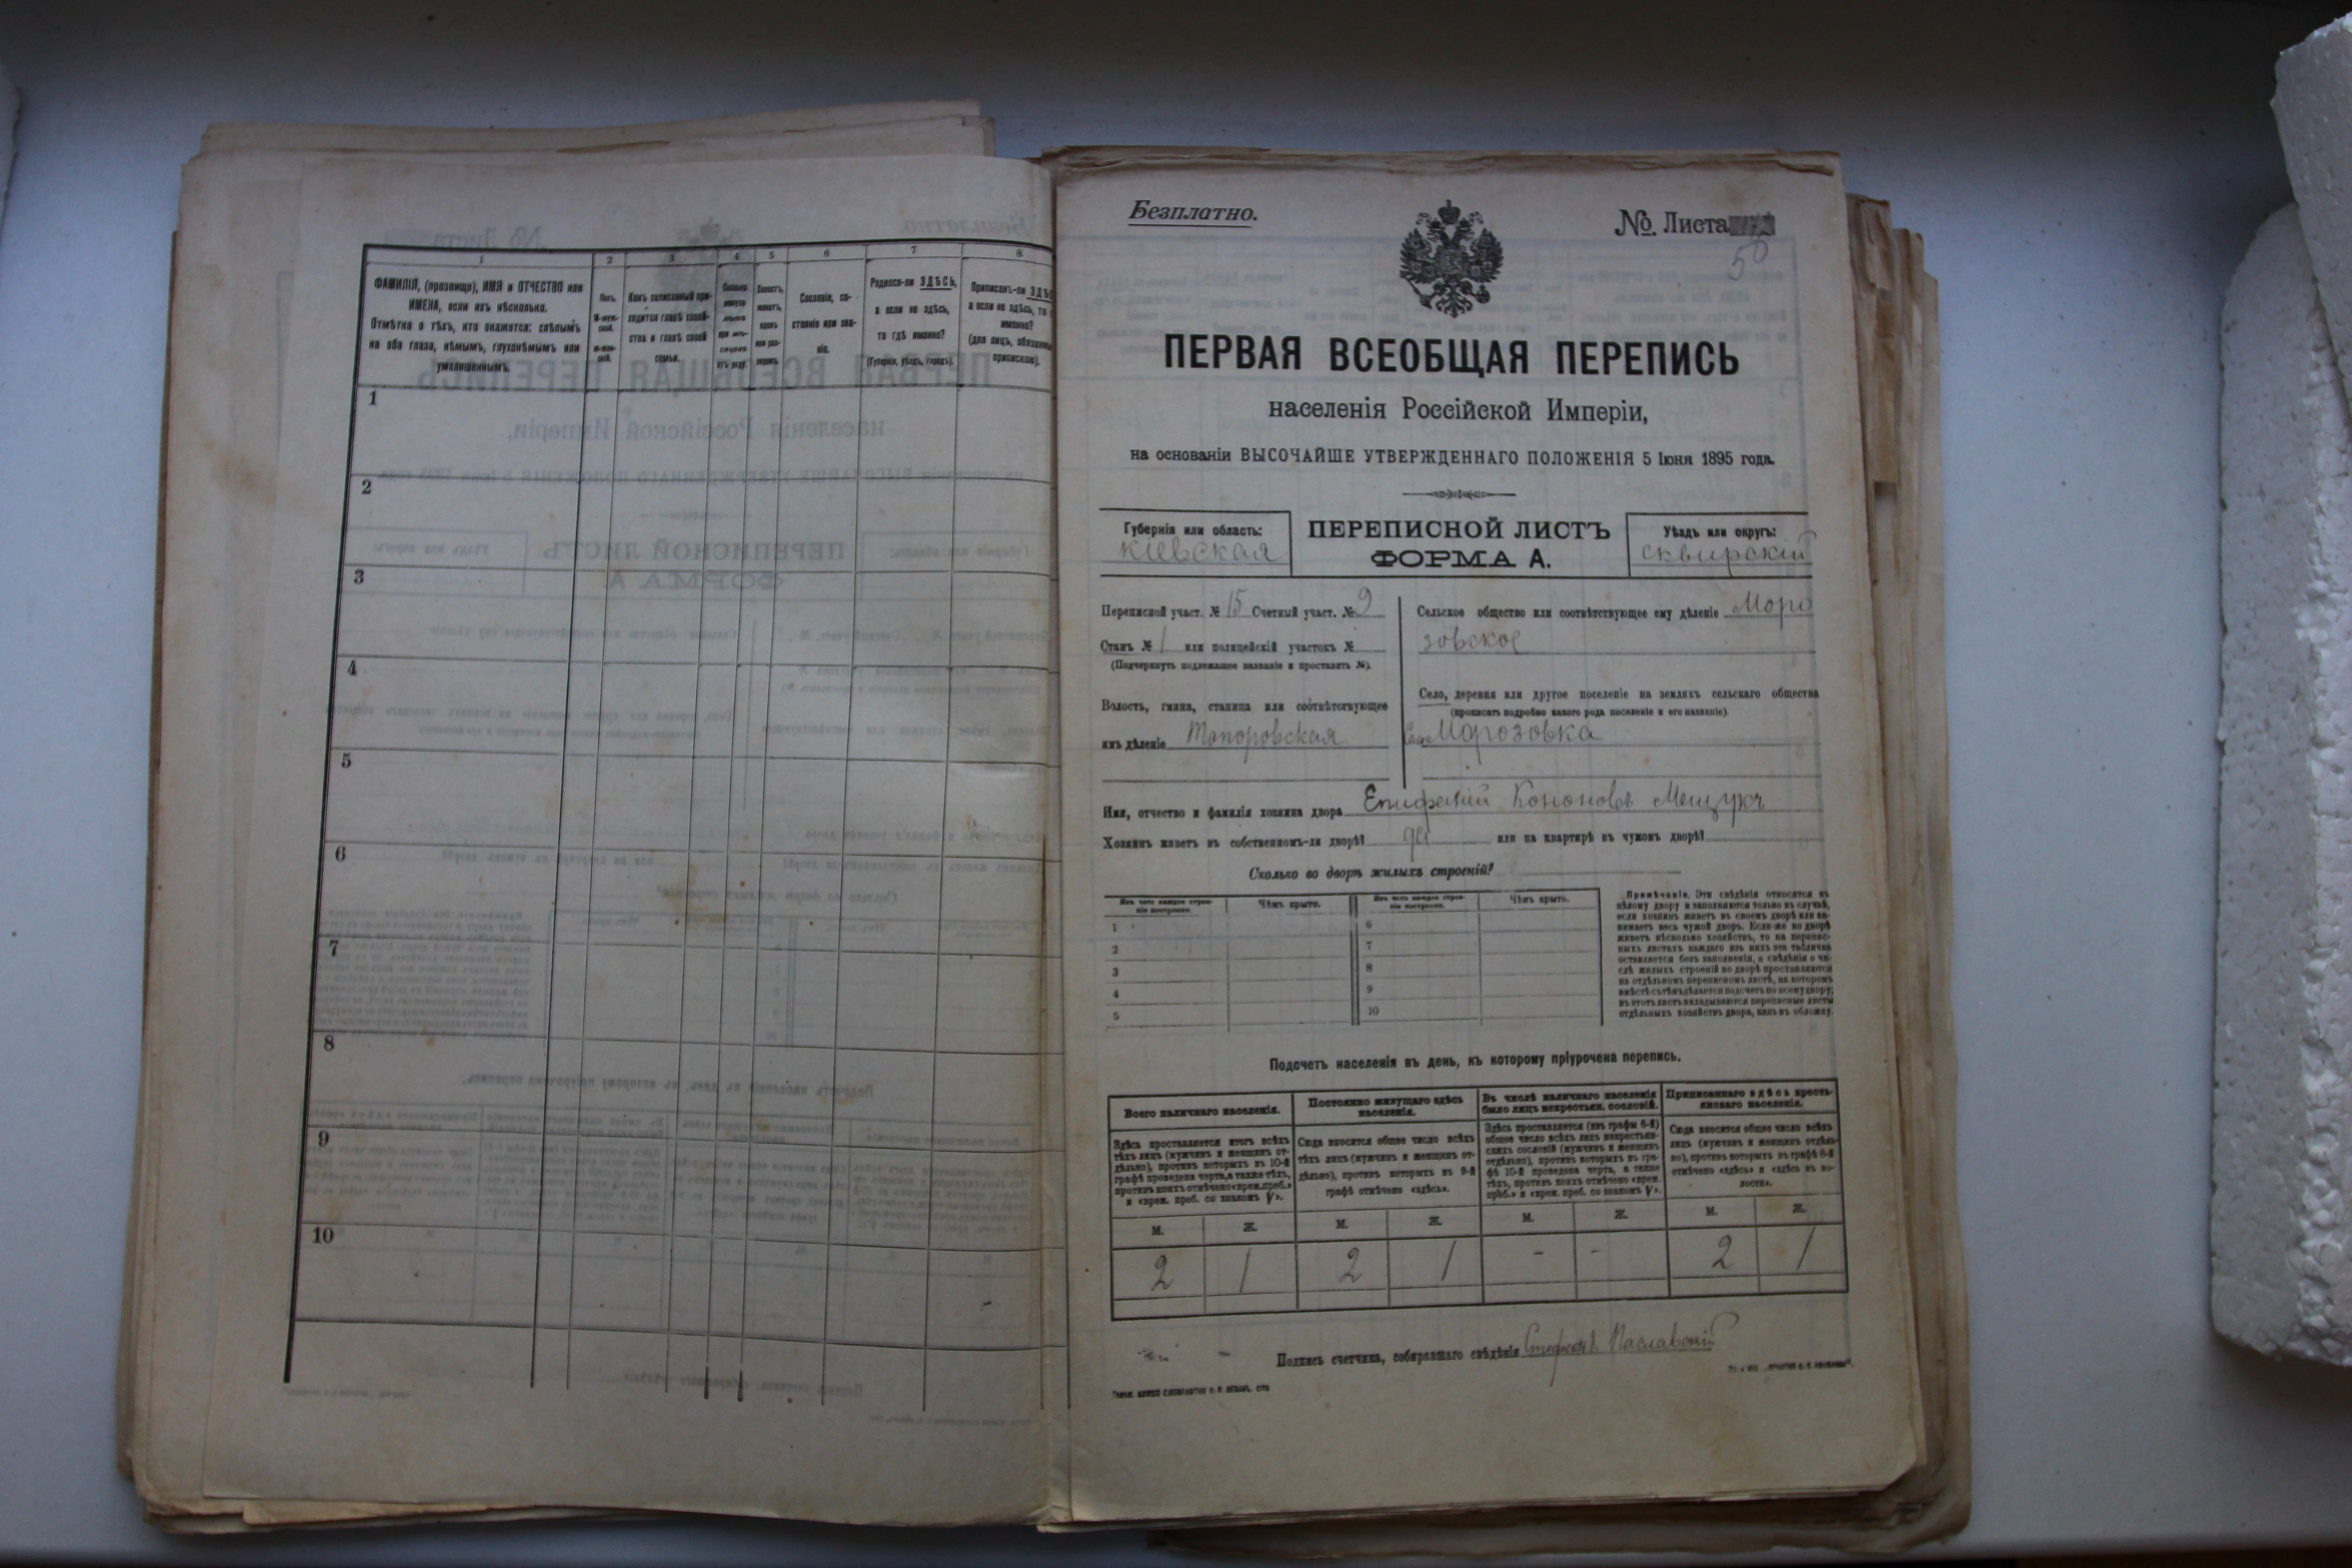 1 2 3 4 5 6 7 8
ФАМИЛІЯ, (прозвище), ИМЯ и ОТЧЕСТВО или
ИМЕНА, если ихъ нѣсколько.
Отмѣтка о тѣхъ, кто окажется: слѣпымъ
на оба глаза, нѣмымъ, глухонѣмымъ или
умалишеннымъ.
Полъ.
М-муж-
ской.
Ж-жен-
скій.
Какъ записанный при-
ходится главѣ хозяй-
ства и главѣ своей
семьи.
Сколько
минуло
лѣтъ
или мѣ-
сяцевъ
отъ роду.
Холостъ,
женатъ,
вдовъ
или раз-
веденъ.
Сословіе, со-
стояніе или зва-
ніе.
Родился-ли ЗДѢСЬ,
а если не здѣсь,
то гдѣ именно?
(Губернія, уѣздъ, городъ).
Приписанъ-ли
а если не здѣсь, то
именно?
(для лицъ,
припискою).
1
2
3
4
5
6
7
8
9
10
Безплатно.
№ Листа
56
ПЕРВАЯ ВСЕОБЩАЯ ПЕРЕПИСЬ
населенія Россійской Имперіи,
на основаніи ВЫСОЧАЙШЕ УТВЕРЖДЕННАГО ПОЛОЖЕНІЯ 5 Іюня 1895 года.
Губернія или область:
Кіевская
ПЕРЕПИСНОЙ ЛИСТЪ
ФОРМА А.
Уѣздъ или округъ:
Сквирскій
Переписной участ. № 15 Счетный участ. № 9
Станъ № 1 или полицейскій участокъ №
(Подчеркнуть подлежащее названіе и проставить №).
Волость, гмина, станица или соотвѣтствующее
имъ дѣленіе Топоровская
Сельское общество или соотвѣтствующее ему дѣленіе Моро
зовское
Село, деревня или другое поселеніе на земляхъ сельскаго общества
(прописать подробно какого рода поселеніе и его названіе).
Село Морозовка
Имя, отчество и фамилія хозяина двора Епифаній Кононовъ Мещукъ
Хозяинъ живетъ въ собственномъ-ли дворѣ? да или на квартирѣ въ чужомъ дворѣ?
Сколько во дворѣ жилыхъ строеній?
Изъ чего каждое строе-
ніе построено.
Чѣмъ крыто.
Изъ чего каждое строе-
ніе построено.
Чѣмъ крыто.
1 6
2 7
3 8
4 9
5 10
Примѣчаніе. Эти свѣдѣнія относятся къ
цѣлому двору и заполняются только въ случаѣ,
если хозяинъ живетъ въ своемъ дворѣ или за-
нимаетъ весь чужой дворъ. Если-же во дворѣ
живетъ нѣсколько хозяйствъ, то на перепис-
ныхъ листахъ каждаго изъ нихъ эта табличка
оставляется безъ заполненія, а свѣдѣнія о чи-
слѣ жилыхъ строеній во дворѣ проставляются
на отдѣльномъ переписномъ листѣ, на которомъ
вмѣстѣ съ тѣмъ дѣлается подсчетъ по всему двору;
въ этотъ листъ вкладываются переписные листы
отдѣльныхъ хозяйствъ двора, какъ въ обложку.
Подсчетъ населенія въ день, къ которому пріурочена перепись.
Всего наличнаго населенія.
Здѣсь проставляется итогъ всѣхъ
тѣхъ лицъ (мужчинъ и женщинъ от-
дѣльно), противъ которыхъ въ 10-й
графѣ проведена черта, а также тѣхъ,
противъ коихъ отмѣчено «врем. преб.»
и «врем. преб. со знакомъ V».
Постоянно живущаго здѣсь
населенія.
Сюда вносится общее число всѣхъ
тѣхъ лицъ (мужчинъ и женщинъ от-
дѣльно), противъ которыхъ въ 9-й
графѣ отмѣчено «здѣсь».
Въ числѣ наличнаго населенія
было лицъ некрестьян. сословій.
Здѣсь проставляется (изъ графы 6-й)
общее число всѣхъ лицъ некрестьян-
скихъ сословій (мужчинъ и женщинъ
отдѣльно), противъ которыхъ въ гра-
фѣ 10-й проведена черта, а также
тѣхъ, противъ коихъ отмѣчено «врем.
преб.» и «врем. преб. со знакомъ V».
Приписаннаго здѣсь кресть-
янскаго населенія.
Сюда вносится общее число всѣхъ
лицъ (мужчинъ и женщинъ отдѣль-
но), противъ которыхъ въ графѣ 8-й
отмѣчено «здѣсь» и «здѣсь въ во-
лости».
М. Ж. М. Ж. М. Ж. М. Ж.
2 1 2 1 - - 2 1
Подпись счетчика, собиравшаго свѣдѣнія Стефанъ Паславскій